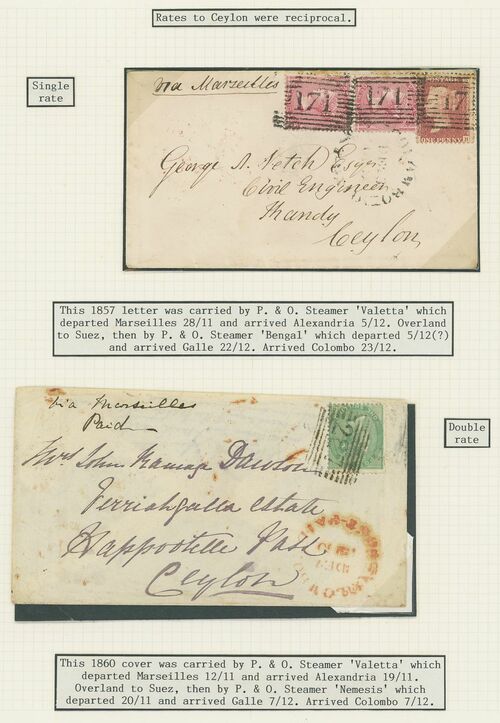 Rates to Ceylon were reciprocal.
Single
rate
via Marseilles
171
171
17
ONE PENNY
George A. Fetch Esqre
Civil Engineer
Khandy
Ceylon
This 1857 letter was carried by P. & O. Steamer 'Valetta' which
departed Marseilles 28/11 and arrived Alexandria 5/12. Overland
to Suez, then by P. & O. Steamer 'Bengal' which departed 5/12(?)
and arrived Galle 22/12. Arrived Colombo 23/12.
Double
rate
via Marseilles
Paid
Mrs John Ramage Dawson
estate
Happootelle Pass
Ceylon
This 1860 cover was carried by P. & O. Steamer 'Valetta' which
departed Marseilles 12/11 and arrived Alexandria 19/11.
Overland to Suez, then by P. & O. Steamer 'Nemesis' which
departed 20/11 and arrived Galle 7/12. Arrived Colombo 7/12.